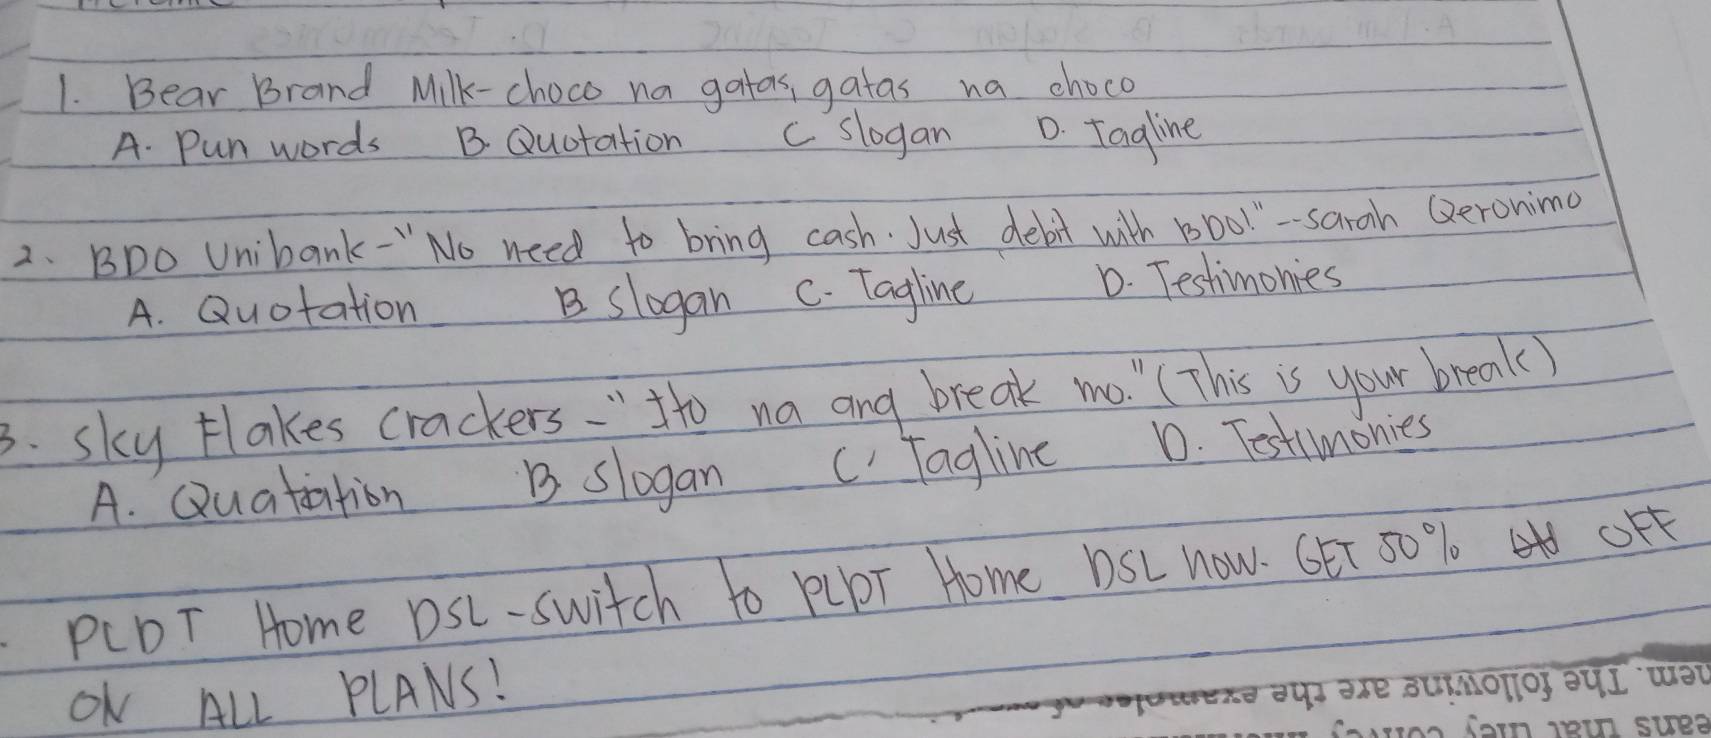 1. Bear Brand Milk-choco na gatas, gatas na choco
A. Pun words B. Quotation C Slogan D. Tagline
2. BDO Unibank-"No need to bring cash. Just debit with BDO!"--Sarah Qeronimo
A. Quotation B Slogan C. Tagline D. Testimonies
3. Sky Flakes Crackers-"Ito na ang break mo."(This is your break)
A. Quatation B Slogan C. Tagline D. Testimonies
PLDT Home DSL-switch to PLDT Home DSL now. GET 50% OFF
ON ALL PLANS!
hem. The following are the examples
eans that they convey